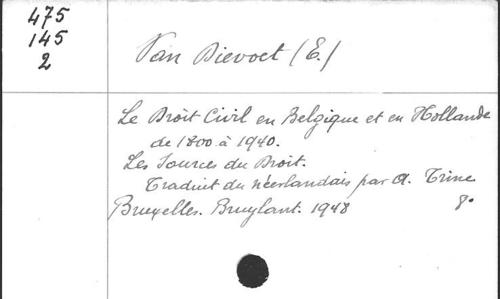 475
145
2
Van Dievoet (E.)
Le Droit Civil en Belgique et en Hollande
de 1800 à 1940.
Les Sources du Droit.
Traduit du néerlandais par A. Trine
Bruxelles. Bruylant. 1948 8°